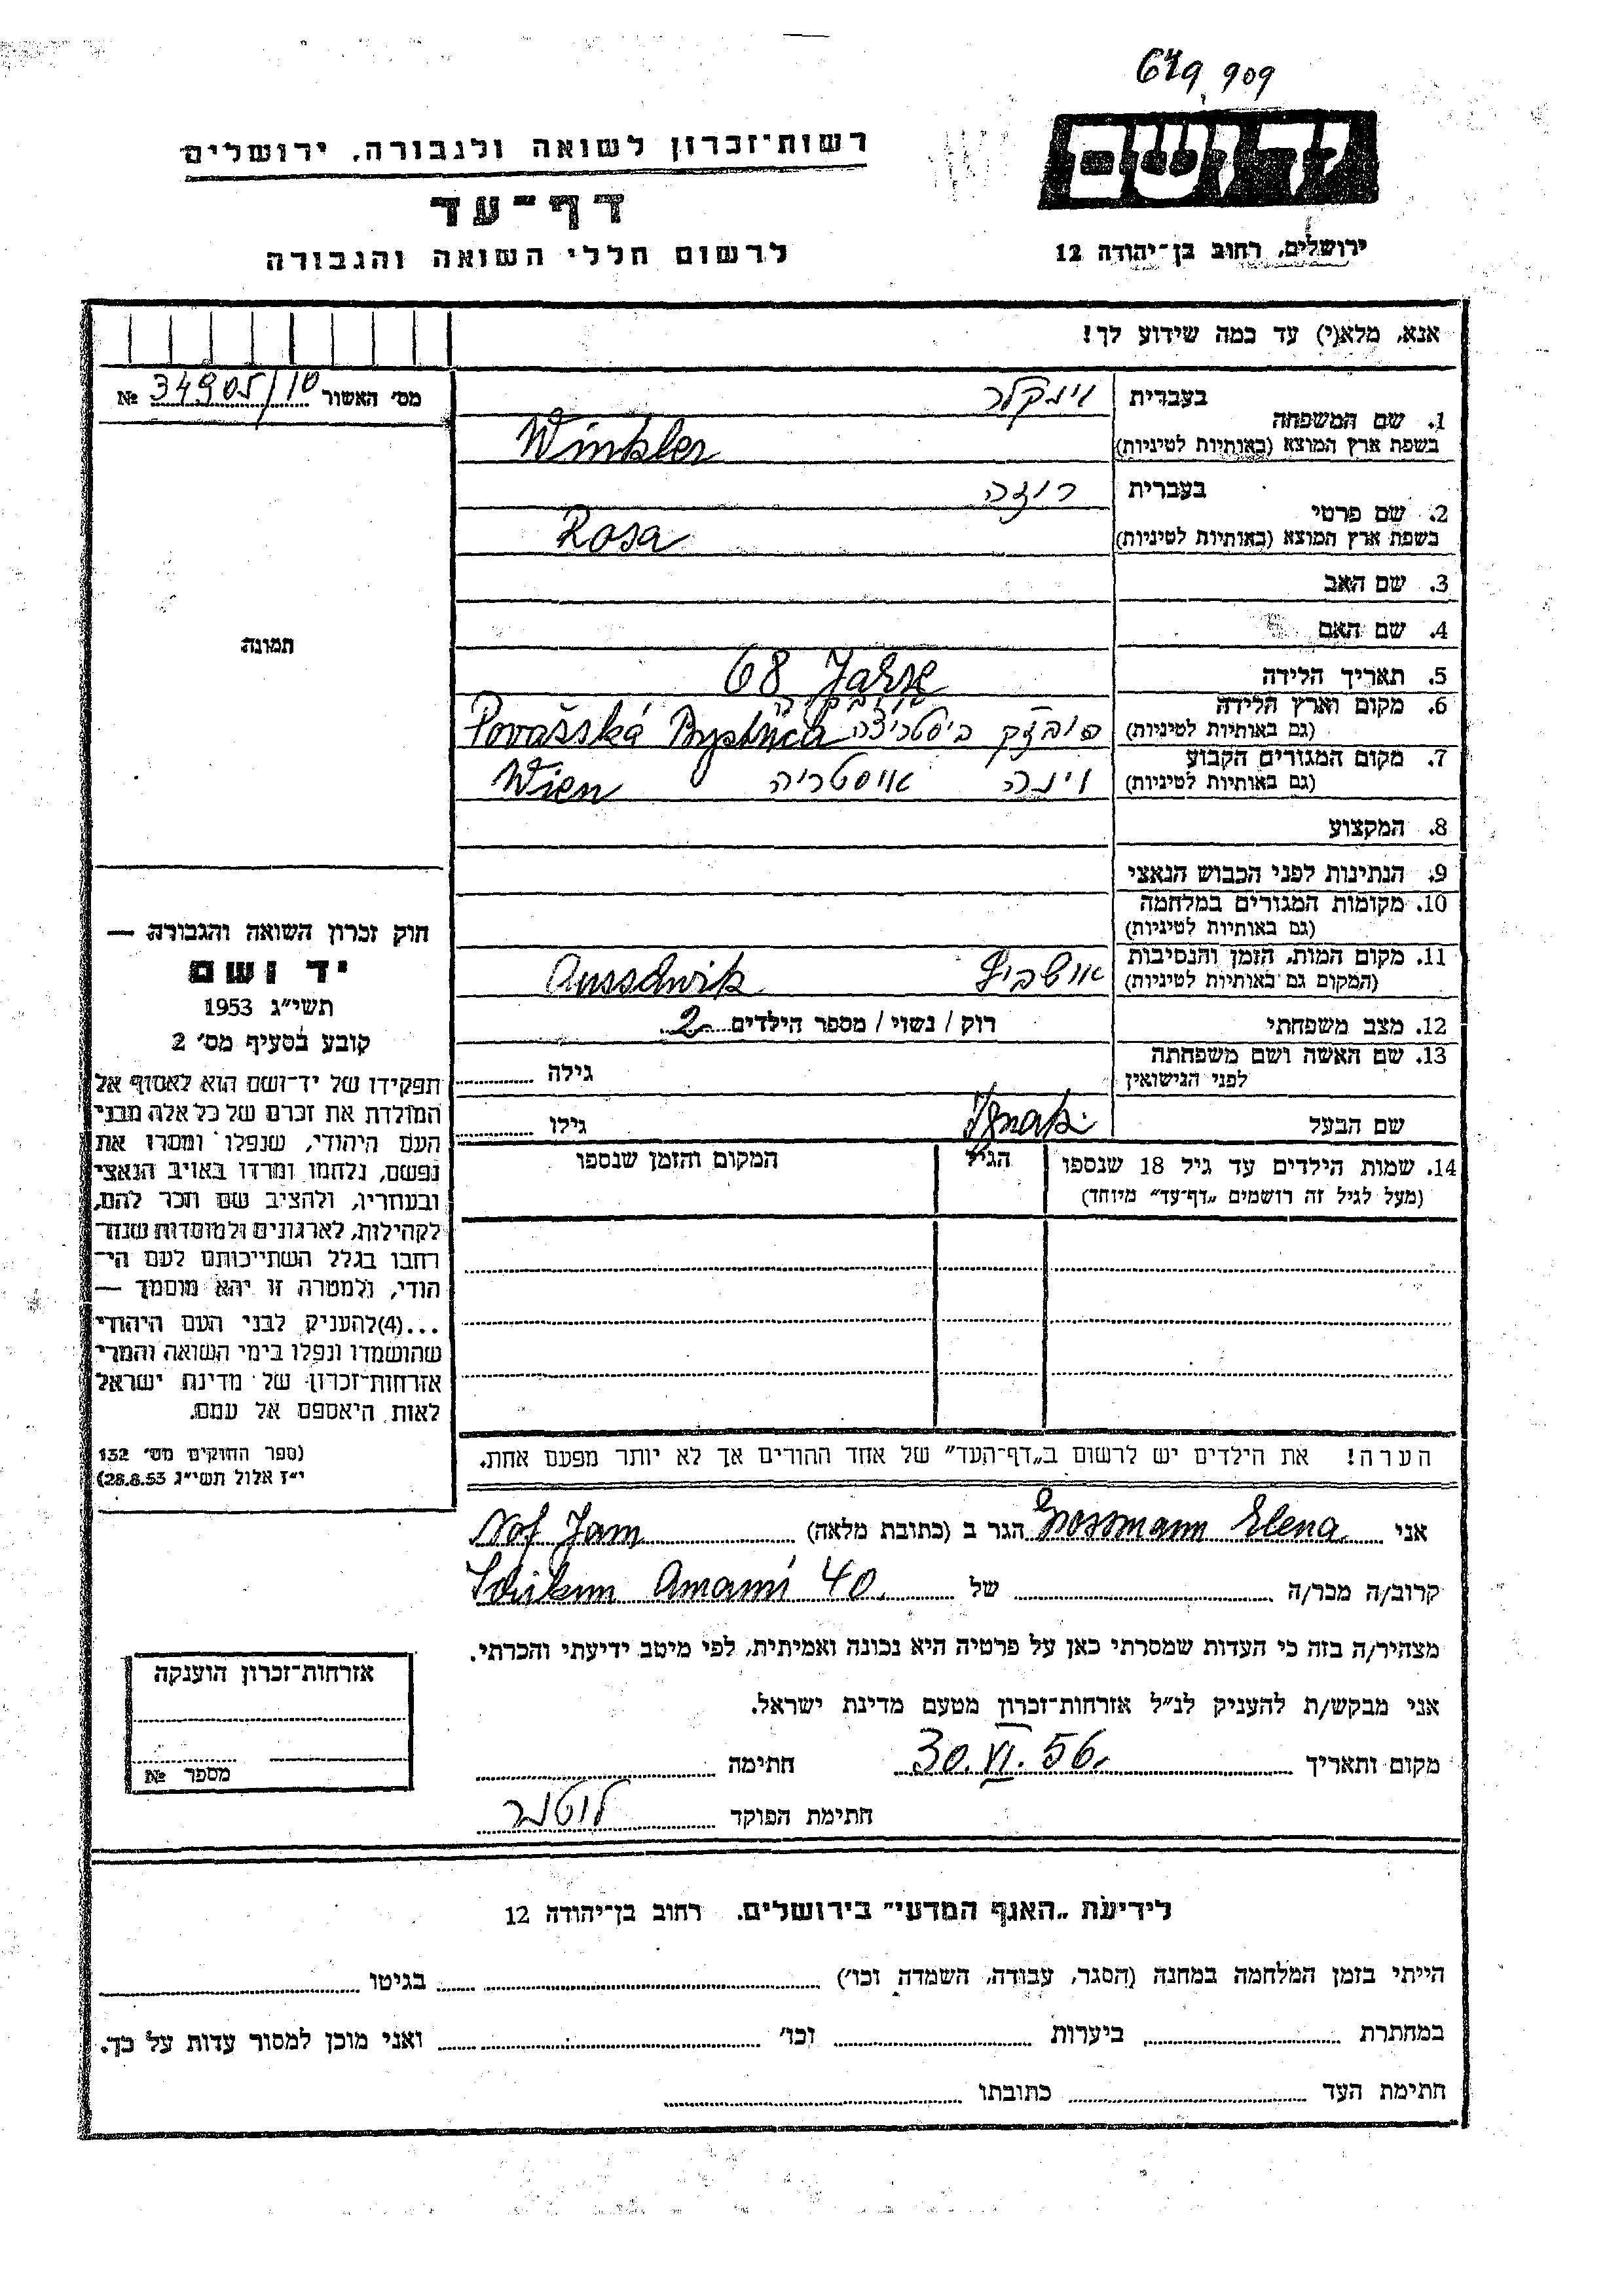 649909
יד ושם
רשות־זכרון לשואה ולגבורה, ירושלים
דף־עד
לרשום חללי השואה והגבורה
ירושלים, רחוב בן־יהודה 12
אנא, מלא(י) עד כמה שידוע לך!
מס׳ האשור 34905/10 №
1. שם המשפחה
בעברית וינקלר
בשפת ארץ המוצא (באותיות לטיניות) Winkler
2. שם פרטי
בעברית רוזה
בשפת ארץ המוצא (באותיות לטיניות) Rosa
3. שם האב
4. שם האם
5. תאריך הלידה 68 Jahre
6. מקום וארץ הלידה
(גם באותיות לטיניות) ביסטריצה Považská Bystrica
7. מקום המגורים הקבוע
(גם באותיות לטיניות) וינה אוסטריה Wien
8. המקצוע
9. הנתינות לפני הכבוש הנאצי
10. מקומות המגורים במלחמה
(גם באותיות לטיניות)
11. מקום המות, הזמן והנסיבות
(המקום גם באותיות לטיניות) אושביץ Ausschwitz
12. מצב משפחתי רוק / נשוי / מספר הילדים 2
13. שם האשה ושם משפחתה
לפני הנישואין גילה
שם הבעל Ignatz גילו
14. שמות הילדים עד גיל 18 שנספו הגיל המקום והזמן שנספו
(מעל לגיל זה רושמים „דף־עד״ מיוחד)
תמונה
חוק זכרון השואה והגבורה —
יד ושם
תשי״ג 1953
קובע בסעיף מס׳ 2
תפקידו של יד־ושם הוא לאסוף אל
המולדת את זכרם של כל אלה מבני
העם היהודי, שנפלו ומסרו את
נפשם, נלחמו ומרדו באויב הנאצי
ובעוזריו, ולהציב שם וזכר להם,
לקהילות, לארגונים ולמוסדות שנח־
רבו בגלל השתייכותם לעם הי־
הודי, ולמטרה זו יהא מוסמך —
...(4) להעניק לבני העם היהודי
שהושמדו ונפלו בימי השואה והמרי
אזרחות־זכרון של מדינת ישראל
לאות היאספם אל עמם.
(ספר החוקים מס׳ 132
י״ז אלול תשי״ג 28.8.53)
הערה! את הילדים יש לרשום ב„דף־העד״ של אחד ההורים אך לא יותר מפעם אחת.
אני Grossmann Elena הגר ב (כתובת מלאה) Nof Jam
קרוב/ה מכר/ה של Schikun Amami 40
מצהיר/ה בזה כי העדות שמסרתי כאן על פרטיה היא נכונה ואמיתית, לפי מיטב ידיעתי והכרתי.
אני מבקש/ת להעניק לנ״ל אזרחות־זכרון מטעם מדינת ישראל.
מקום ותאריך 30.VI.56. חתימה
חתימת הפוקד
אזרחות־זכרון הוענקה
מספר №
לידיעת „האגף המדעי״ בירושלים, רחוב בן־יהודה 12
הייתי בזמן המלחמה במחנה (הסגר, עבודה, השמדה וכו׳) בגיטו
במחתרת ביערות וכו׳ ואני מוכן למסור עדות על כך.
חתימת העד כתובתו